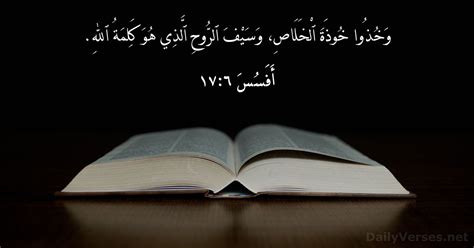 وَخُذُوا خُوذَةَ ٱلْخَلَاصِ، وَسَيْفَ ٱلرُّوحِ ٱلَّذِي هُوَ كَلِمَةُ ٱللهِ.
أَفَسُسَ ٦:١٧
DailyVerses.net